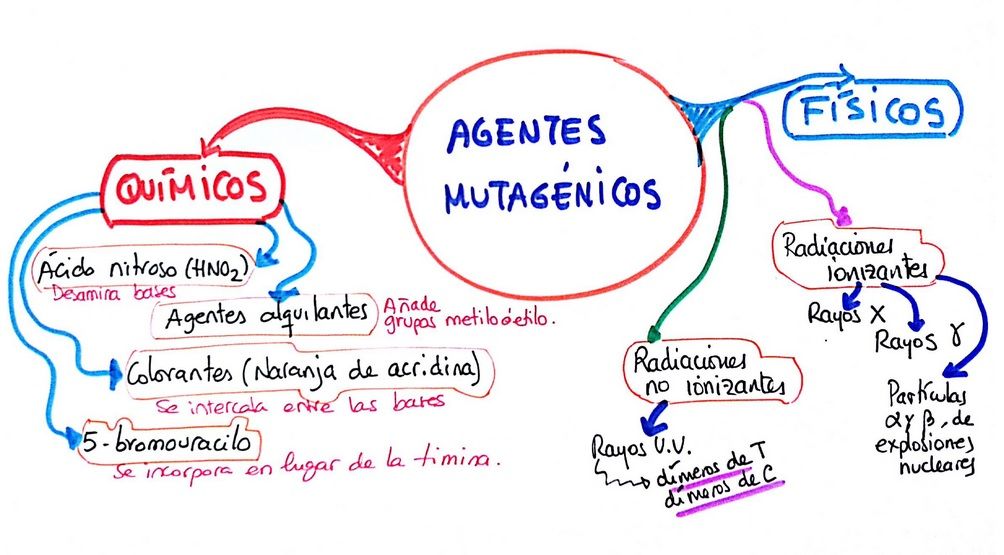 AGENTES
MUTAGÉNICOS
QUÍMICOS
Ácido nitroso (HNO2)
Desamina bases
Agentes alquilantes
Añade
grupos metilo ó etilo.
Colorantes (Naranja de acridina)
Se intercala entre las bases
5-bromouracilo
Se incorpora en lugar de la timina.
FÍSICOS
Radiaciones
ionizantes
Rayos X
Rayos γ
Partículas
α y β, de
explosiones
nucleares
Radiaciones
no ionizantes
Rayos U.V.
dímeros de T
dímeros de C